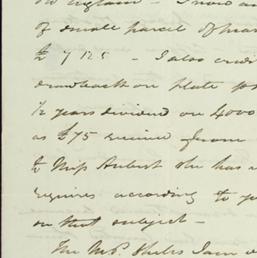 in England – I now
of small parcel of
£7125 – I also credit
drawback on plate
½ years dividend on 4000
as £75 received from
to Miss Aubert she has
requires according to
on that subject –
The Mrs. I am